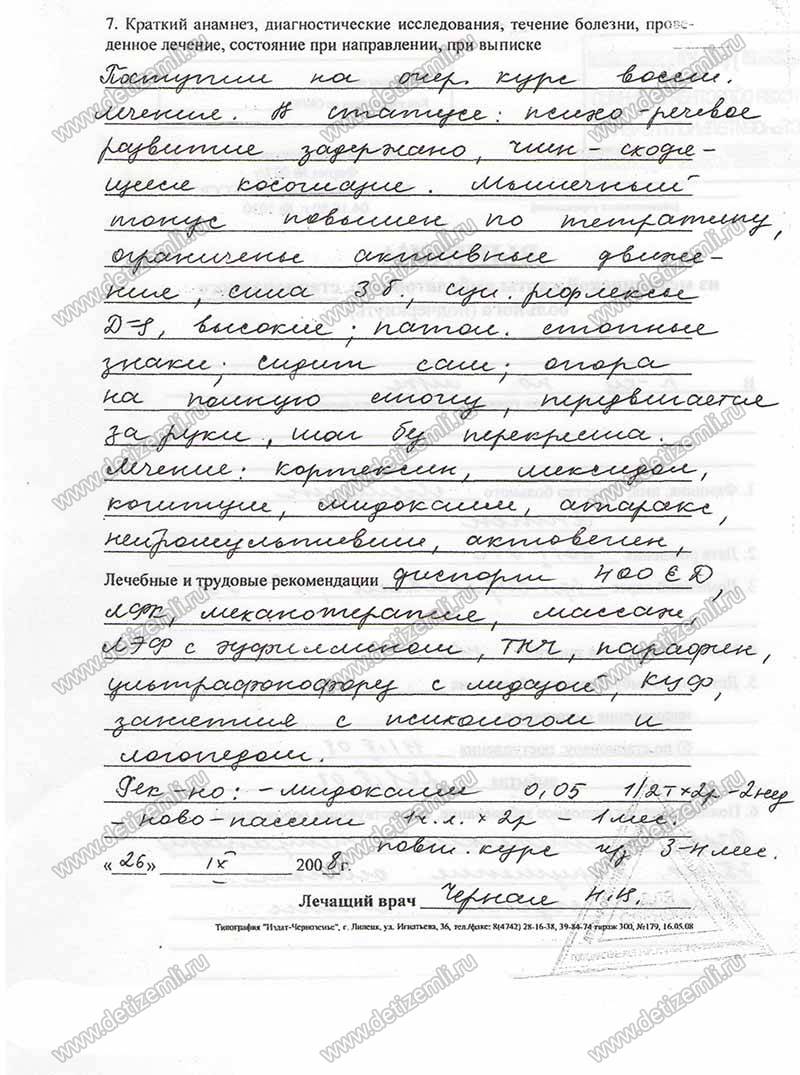 7. Краткий анамнез, диагностические исследования, течение болезни, прове-
денное лечение, состояние при направлении, при выписке
Поступил на очер. курс восст.
лечения. В статусе: психо-речевое
развитие задержано, ЧМН - сходя-
щееся косоглазие. Мышечный
тонус повышен по тетратипу,
ограничены активные движе-
ния, сила 3 б., сух. рефлексы
D=S, высокие; патол. стопные
знаки; сидит сам; опора
на полную стопу, передвигается
за руки, шаг без перекреста.
Лечение: кортексин, мексидол,
когитум, мидокалм, атаракс,
нейромультивит, актовегин,
Лечебные и трудовые рекомендации диспорт 400 ЕД,
ЛФК, механотерапия, массаж,
ЛЭФ с эуфиллином, ТКЧ, парафин,
ультрафонофорез с лидазой, КУФ,
занятия с психологом и
логопедом.
Рек-но: - мидокалм 0,05 1/2т×2р-2нед
- ново-пассит 1ч.л.×2р - 1 мес.
повт. курс чз 3-4 мес.
«26» IX 2008г.
Лечащий врач Черная Н.Н.
Типография "Издат-Черноземье", г. Липецк, ул. Игнатьева, 36, тел./факс: 8(4742) 28-16-38, 39-84-74 тираж 300, №179, 16.05.08
www.detizemli.ru